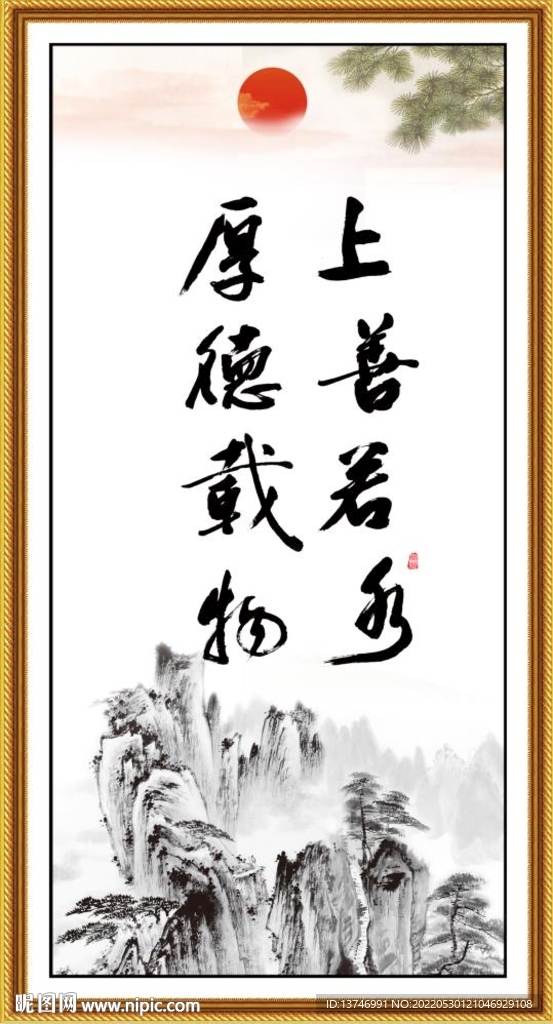 上善若水
厚德载物
昵图网 www.nipic.com
ID:13746991 NO:20220530121046929108